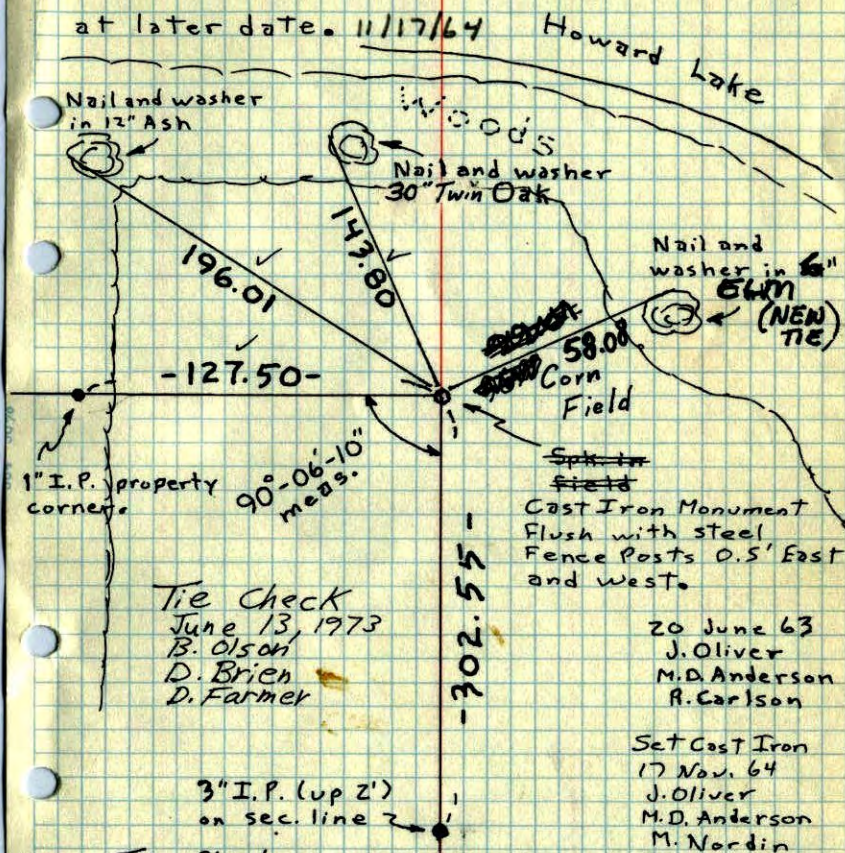 at later date. 11/17/64
Howard Lake
Woods
Nail and washer
in 12" Ash
Nail and washer
30" Twin Oak
Nail and
washer in 6"
ELM
(NEW
TIE)
196.01
143.80
58.08
-127.50-
Corn
Field
1" I.P. property
corner.
90°-06'-10"
meas.
Spk. in
Field
Cast Iron Monument
Flush with steel
Fence Posts 0.5' East
and west.
-302.55-
Tie Check
June 13, 1973
B. Olson
D. Brien
D. Farmer
20 June 63
J. Oliver
M.D. Anderson
R. Carlson
Set Cast Iron
17 Nov. 64
J. Oliver
M.D. Anderson
M. Nordin
3" I.P. (up 2')
on sec. line